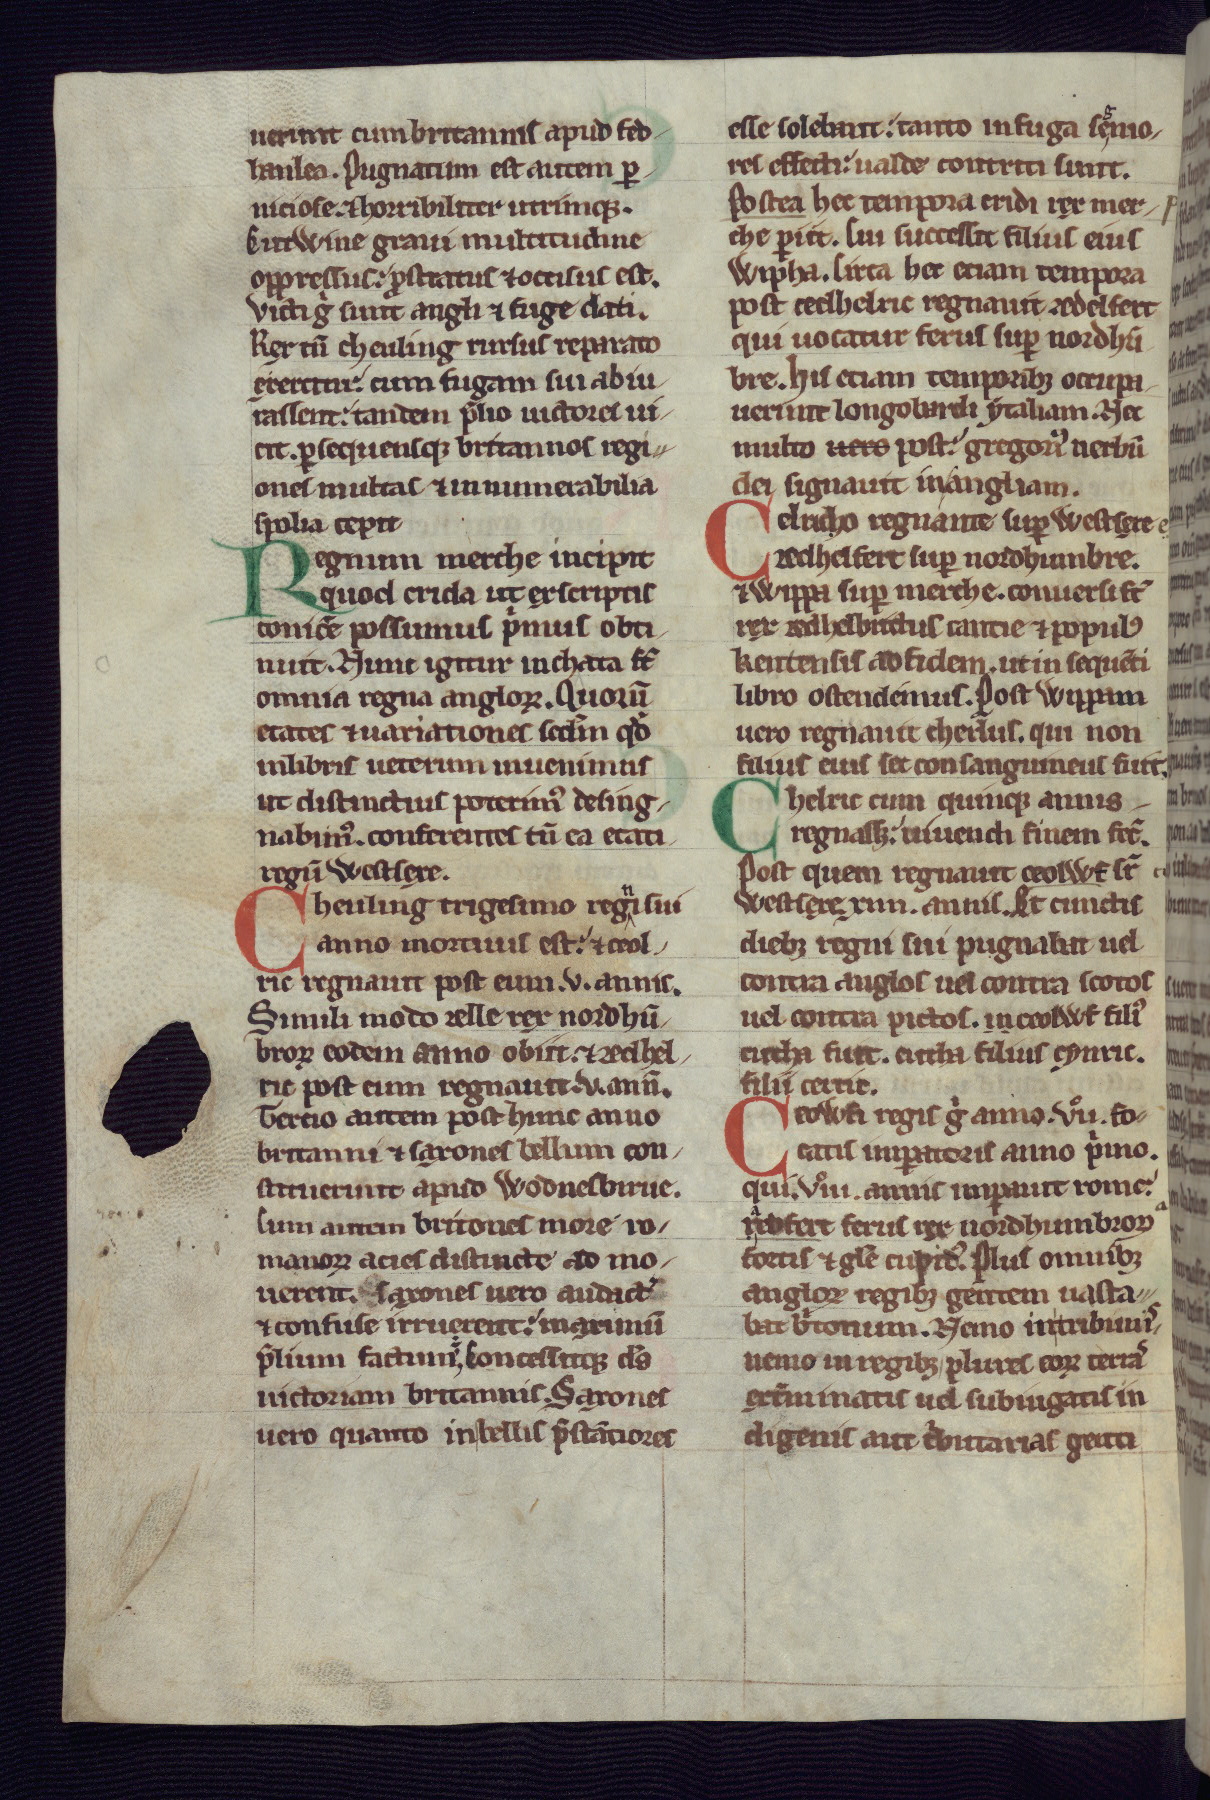 uerunt cum britannis apud fed-
hanlea. Pugnatum est autem p̱-
niciose. ⁊ horribiliter utrimq;.
Cutwine graui multitudine
oppressus: ꝓstratus ⁊ occisus est.
Victi g̊ sunt angli ⁊ fuge dati.
Rex tū cheuling rursus reparato
exercitu: cum fugam sui abiu-
rassent: tandem p̄lio uictores ui-
cit. ꝑsequensq; britannos regi-
ones multas ⁊ innumerabilia
spolia cepit
Regnum merche incipit
quod crida ut ex scriptis
conicē possumus pͥmus obti-
nuit. Nunc igitur inchata st̄
omnia regna angloꝝ. Quorū
etates ⁊ uariationes scd̄m qd̄
in libris ueterum inuenimus
ut distinctius poterimꝰ desing-
nabimꝰ. conferentes tū ea etati
regū Westsexe.
Cheuling trigesimo regni sui
anno mortuus est: ⁊ ceol-
ric regnauit post eum .v. annis.
Simili modo ælle rex nordhū-
broꝝ eodem anno obiit. ⁊ ædhel-
ric post eum regnauit .v. ann̄.
Tercio autem post hunc anno
britanni ⁊ saxones bellum con-
stituerunt apud Wodnesbirue.
Cum autem britones more ro-
manoꝝ acies distincte ad mo-
uerent. Saxones uero audact̉
⁊ confuse irruerent: maximū
p̄lium factum, Concessitq; ds̄
uictoriam britannis. Saxones
uero quanto in bellis p̄stātiores
esse solebant: tanto in fuga segnio-
res effecti: ualde contriti sunt.
Postea hec tempora cridi rex mer-
che ꝑiit. Cui successit filius eius
Wipha. Circa hec etiam tempora
post ædhelric regnauit ædelfert
qui uocatur ferus suꝑ nordhū-
bre. His etiam temporib; occupa-
uerunt longobardi ytaliam. Nec
multo uero post: gregoriꝰ uerbū
dei signauit in angliam.
Celricho regnante suꝑ Westsexe
ædhelfert suꝑ nordhumbre.
⁊ Wippa suꝑ merche. conuersi st̄
rex ædhelbrictus cantie ⁊ populꝰ
kentensis ad fidem. ut in sequēti
libro ostendemus. Post Wippam
uero regnauit cherlus. qui non
filius eius set consanguineus fuit.
Chelric cum quinq; annis
regnass;: uiuendi finem fec̄.
Post quem regnauit ceolWf̄ sr̄
Westsexe xiiii. annis. Et cunctis
dieb; regni sui pugnabat uel
contra anglos uel contra scotos
uel contra pictos. in ceolWf̄ filiꝰ
cutha fuit. cutha filius cynric.
filii certic.
CeolWfi regis g̊ anno .vͦii. fo-
catis imꝑatoris anno pͥmo.
qui .vͦiii. annis imꝑauit rome:
ædfert ferus rex nordhumbroꝝ
fortis ⁊ gl̄e cupidꝰ. Plus omnib;
angloꝝ regib; gentem uasta-
bat bͥtonum. Nemo in tribunis,
nemo in regib; plures eoꝝ terras
exterminatis uel subiugatis in
digenis aut tͥbutarias genti